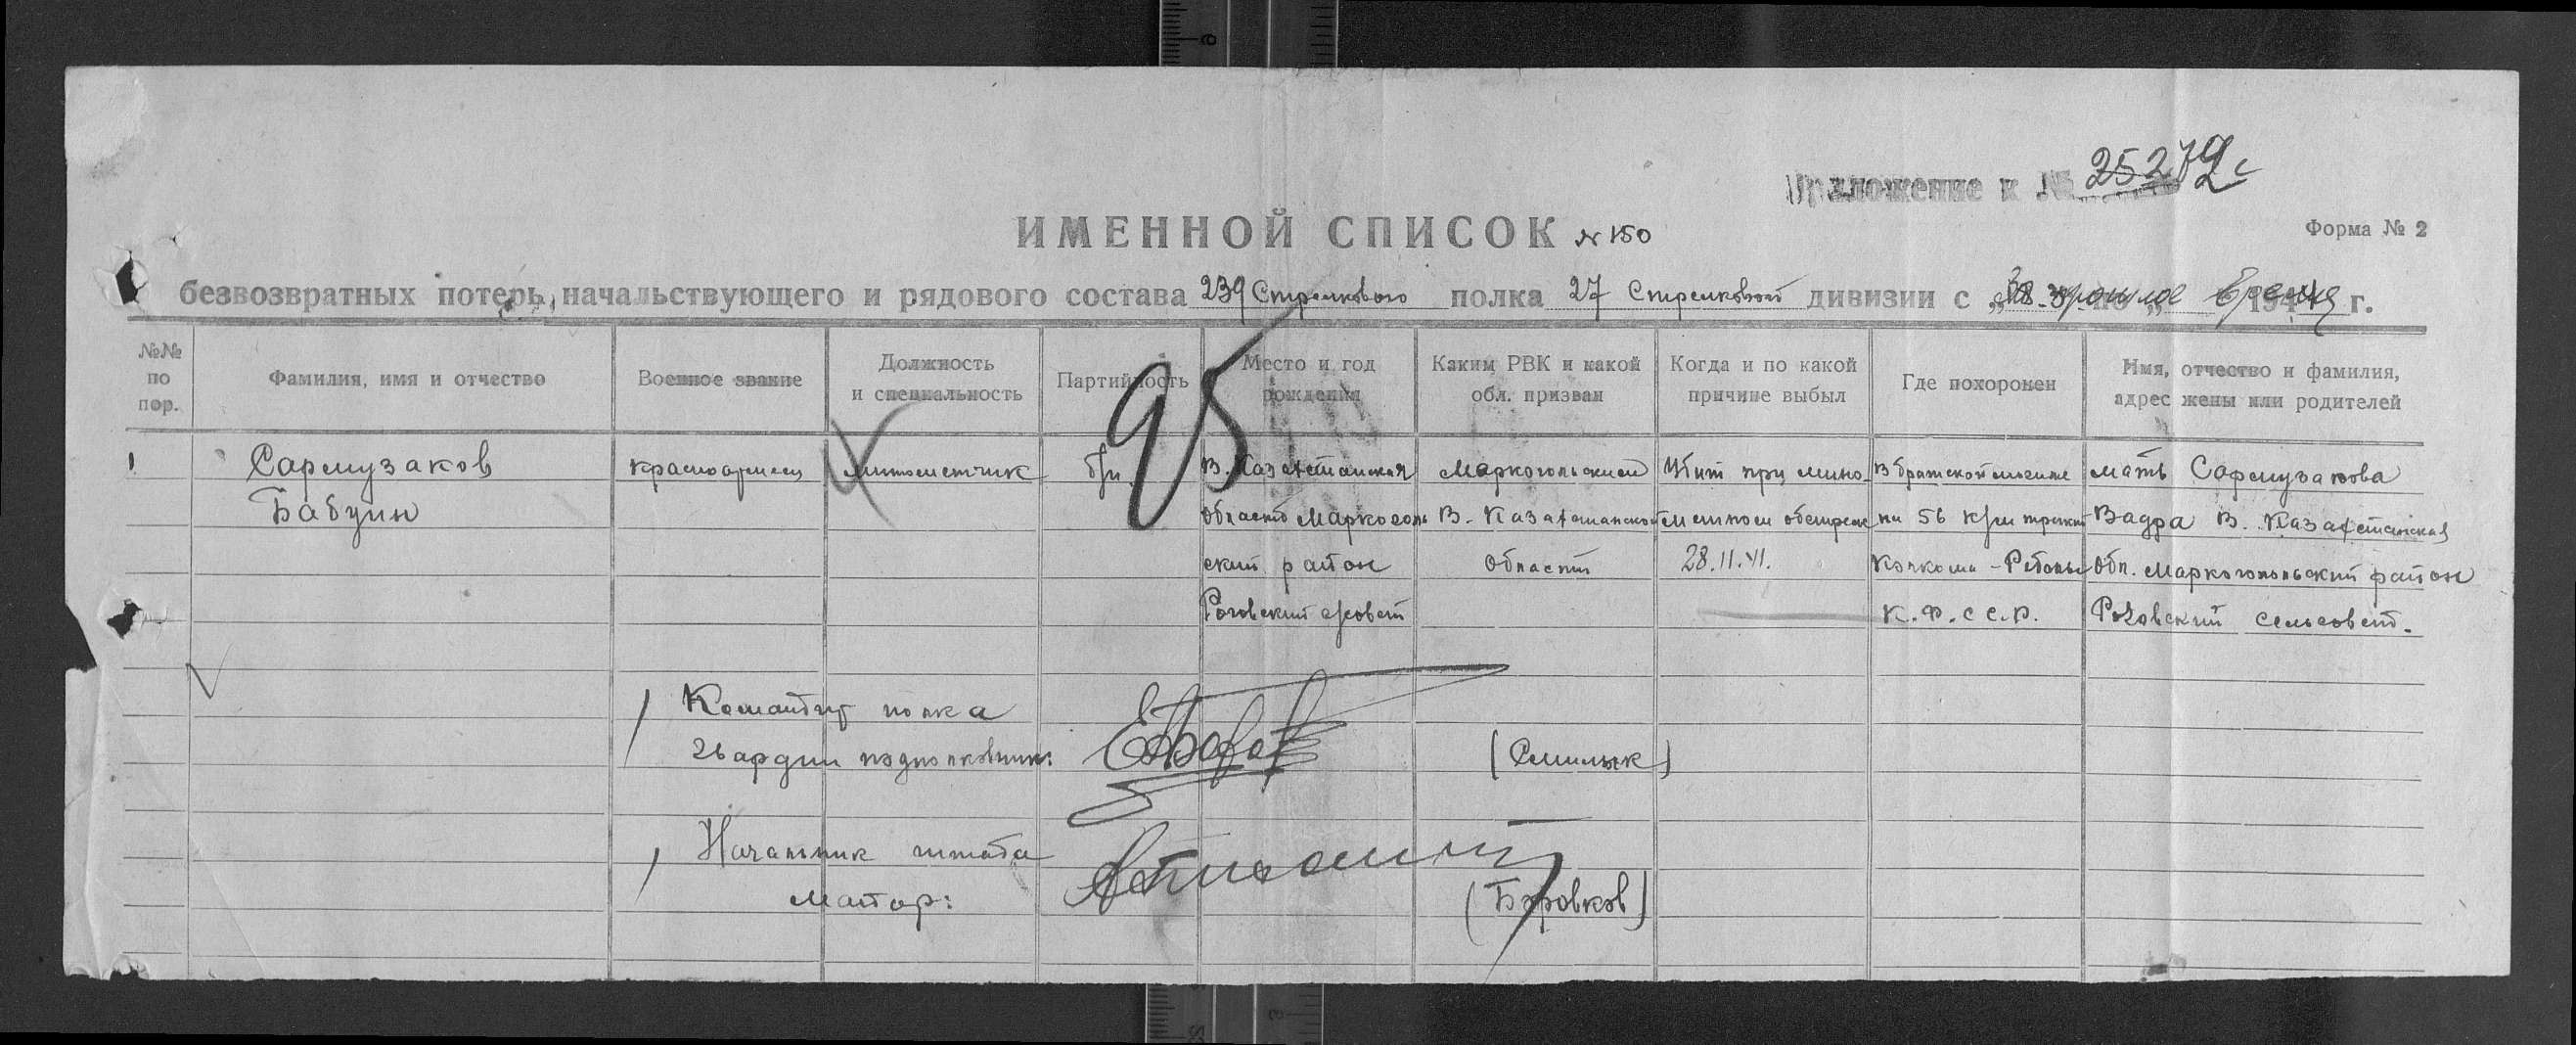 Приложение к № 25279с
ИМЕННОЙ СПИСОК № 150
Форма № 2
безвозвратных потерь, начальствующего и рядового состава 239 Стрелкового полка 27 Стрелковой дивизии с „За прошлое время 194 г.
№№ по пор.
Фамилия, имя и отчество
Военное звание
Должность и специальность
Партийность
Место и год рождения
Каким РВК и какой обл. призван
Когда и по какой причине выбыл
Где похоронен
Имя, отчество и фамилия, адрес жены или родителей
95
1 Сармузаков красноармеец минометчик б/п. В. Казахстанская Маркогольским Убит при мино- В братской могиле мать Сармузакова
Бабуин область Маркоголь В. Казахстанской метном обстреле на 56 к/м тракта Вадра В. Казахстанская
ский район Области 28.11.41. Кочкома - Реболы Обл. Маркогольский район
Роговский с/совет К.Ф.С С.Р. Роговский сельсовет.
Командир полка
гвардии подполковник: (Смилык)
Начальник штаба
майор: (Боровков)